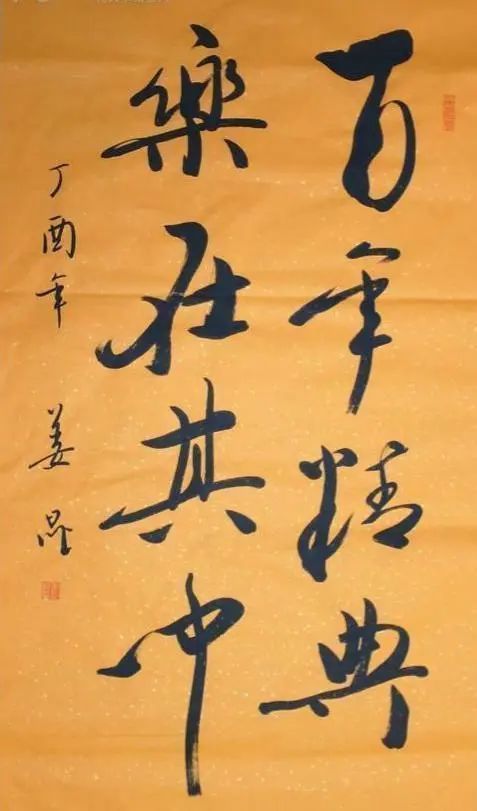 百年精典
樂在其中
丁酉年 姜昆